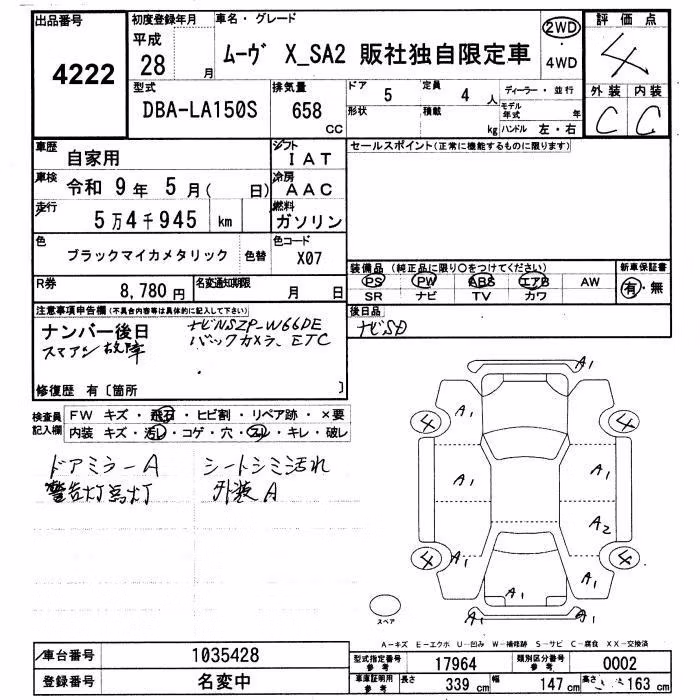 出品番号
4222
初度登録年月
平成
28 月
車名・グレード
ムーヴ X_SA2 販社独自限定車
2WD
・
4WD
評価点
4
外装 内装
C C
型式
DBA-LA150S
排気量
658
CC
ドア 5
定員 4 人
形状
積載
kg
ディーラー・並行
モデル年式 年
ハンドル 左・右
車歴
自家用
シフト
IAT
セールスポイント(正常に機能するものに限ります)
車検
令和 9年 5月( 日)
冷房
AAC
走行
5万4千945 km
燃料
ガソリン
色
ブラックマイカメタリック
色替
色コード
X07
装備品(純正品に限り○をつけてください)
PS PW ABS エアB AW
SR ナビ TV カワ
新車保証書
有・無
R券
8,780円
名変通知期限
月 日
注意事項申告欄(不具合内容等は具体的に記入して下さい)
ナンバー後日
ナビNSZP-W66DE
スマアシ故障
バックカメラ、ETC
修復歴 有〔箇所 〕
後日品
ナビSD
検査員記入欄
FW キズ・飛石・ヒビ割・リペア跡・×要
内装 キズ・汚レ・コゲ・穴・スレ・キレ・破レ
ドアミラーA シートシミ汚れ
警告灯点灯 外装A
A1
A1
A1
4
4
A1
A1
A2
4
4
A1
A1
A1
A1
スペア
A-キズ E-エクボ U-凹み W-補修跡 S-サビ C-腐食 XX-交換済
車台番号
1035428
登録番号
名変中
型式指定番号参考
17964
類別区分番号参考
0002
車庫証明用参考
長さ 339 cm
幅 147 cm
高さ 163 cm